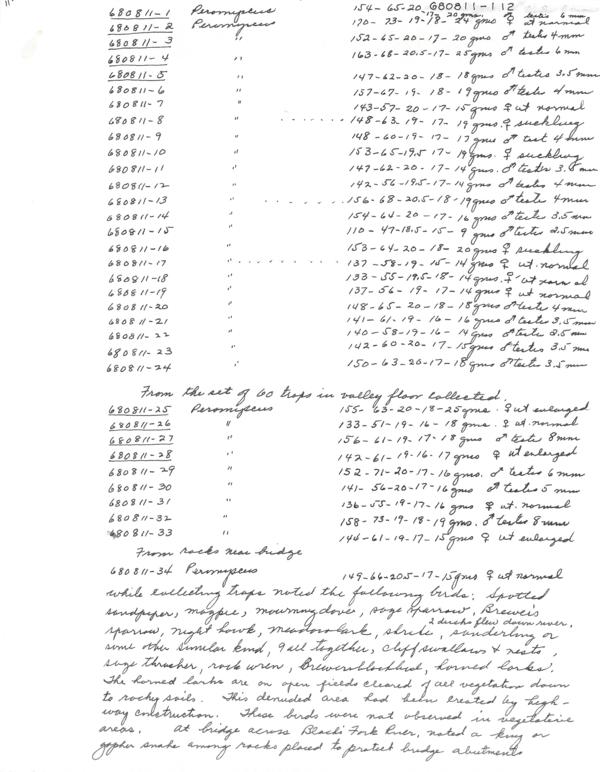 680811-112
680811-1 Peromyscus 154-65-20 testes 6 mm
680811-2 Peromyscus 170-73-19-18-24 gms ♀ ut normal
680811-3 " 152-65-20-17-20 gms ♂ testes 4 mm
680811-4 " 163-68-20.5-17-25 gms ♂ testes 6 mm
680811-5 " 147-62-20-18-18 gms ♂ testes 3.5 mm
680811-6 " 157-67-19-18-19 gms ♂ testes 4 mm
680811-7 " 143-57-20-17-15 gms ♀ ut normal
680811-8 " ...... 148-63-19-17-19 gms. ♀ suckling
680811-9 " 148-60-19-17-17 gms ♂ test 4 mm
680811-10 " 153-65-19.5-17-19 gms. ♀ suckling
680811-11 " 147-62-20-17-14 gms. ♂ testes 3.5 mm
680811-12 " 142-56-19.5-17-14 gms ♂ testes 4 mm
680811-13 " ....... 156-68-20.5-18-19 gms ♂ testes 4 mm
680811-14 " 154-64-20-17-16 gms ♂ testes 3.5 mm
680811-15 " 110-47-18.5-15-9 gms ♂ testes 2.5 mm
680811-16 " 153-64-20-18-20 gms ♀ suckling
680811-17 " ........ 137-58-19-15-14 gms ♀ ut. normal
680811-18 " 133-55-19.5-18-14 gms. ♀ ut normal
680811-19 " 137-56-19-17-14 gms ♀ ut normal
680811-20 " 148-65-20-18-18 gms ♂ testes 4 mm
680811-21 " 141-61-19-16-16 gms ♂ testes 3.5 mm
680811-22 " 140-58-19-16-14 gms ♂ testes 3.5 mm
680811-23 " 142-60-20-17-15 gms ♂ testes 3.5 mm
680811-24 " 150-63-20-17-18 gms ♂ testes 3.5 mm
From the set of 60 traps in valley floor collected.
680811-25 Peromyscus 155-63-20-18-25 gms. ♀ ut enlarged
680811-26 " 133-51-19-16-18 gms. ♀ ut. normal
680811-27 " 156-61-19-17-18 gms ♂ testes 8 mm
680811-28 " 142-61-19-16-17 gms ♀ ut enlarged
680811-29 " 152-71-20-17-16 gms. ♂ testes 6 mm
680811-30 " 141-56-20-17-16 gms ♂ testes 5 mm
680811-31 " 136-55-19-17-16 gms ♀ ut. normal
680811-32 " 158-73-19-18-19 gms. ♂ testes 8 mm
680811-33 " 144-61-19-17-15 gms ♀ ut enlarged
From rocks near bridge
680811-34 Peromyscus 149-66-20.5-17-15 gms ♀ ut normal
while collecting traps noted the following birds: Spotted
sandpiper, magpie, mourning dove, sage sparrow, Brewer's
sparrow, night hawk, meadowlark, shrike, 2 ducks flew down river, sanderling or
some other similar kind, 9 all together, cliff swallows & nests,
sage thrasher, rock wren, Brewers blackbird, horned larks.
The horned larks are on open fields cleared of all vegetation down
to rocky soils. This denuded area had been created by high-
way construction. These birds were not observed in vegetative
areas. At bridge across Black's Fork River, noted a king or
gopher snake among rocks placed to protect bridge abutments